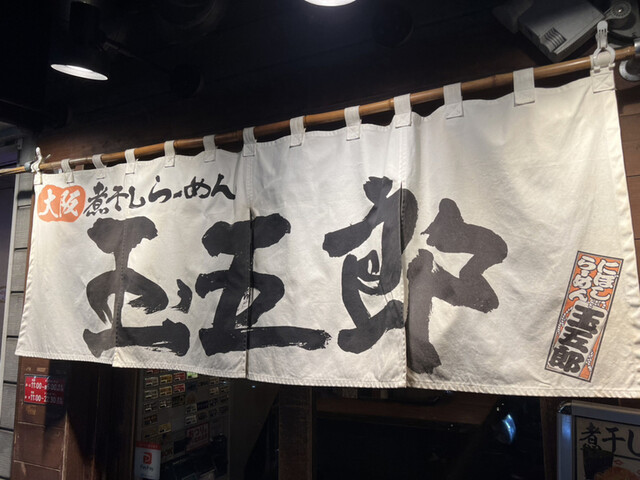 大阪 煮干しらーめん
玉五郎
にぼし
らーめん
玉五郎
11:00
11:00
煮干し